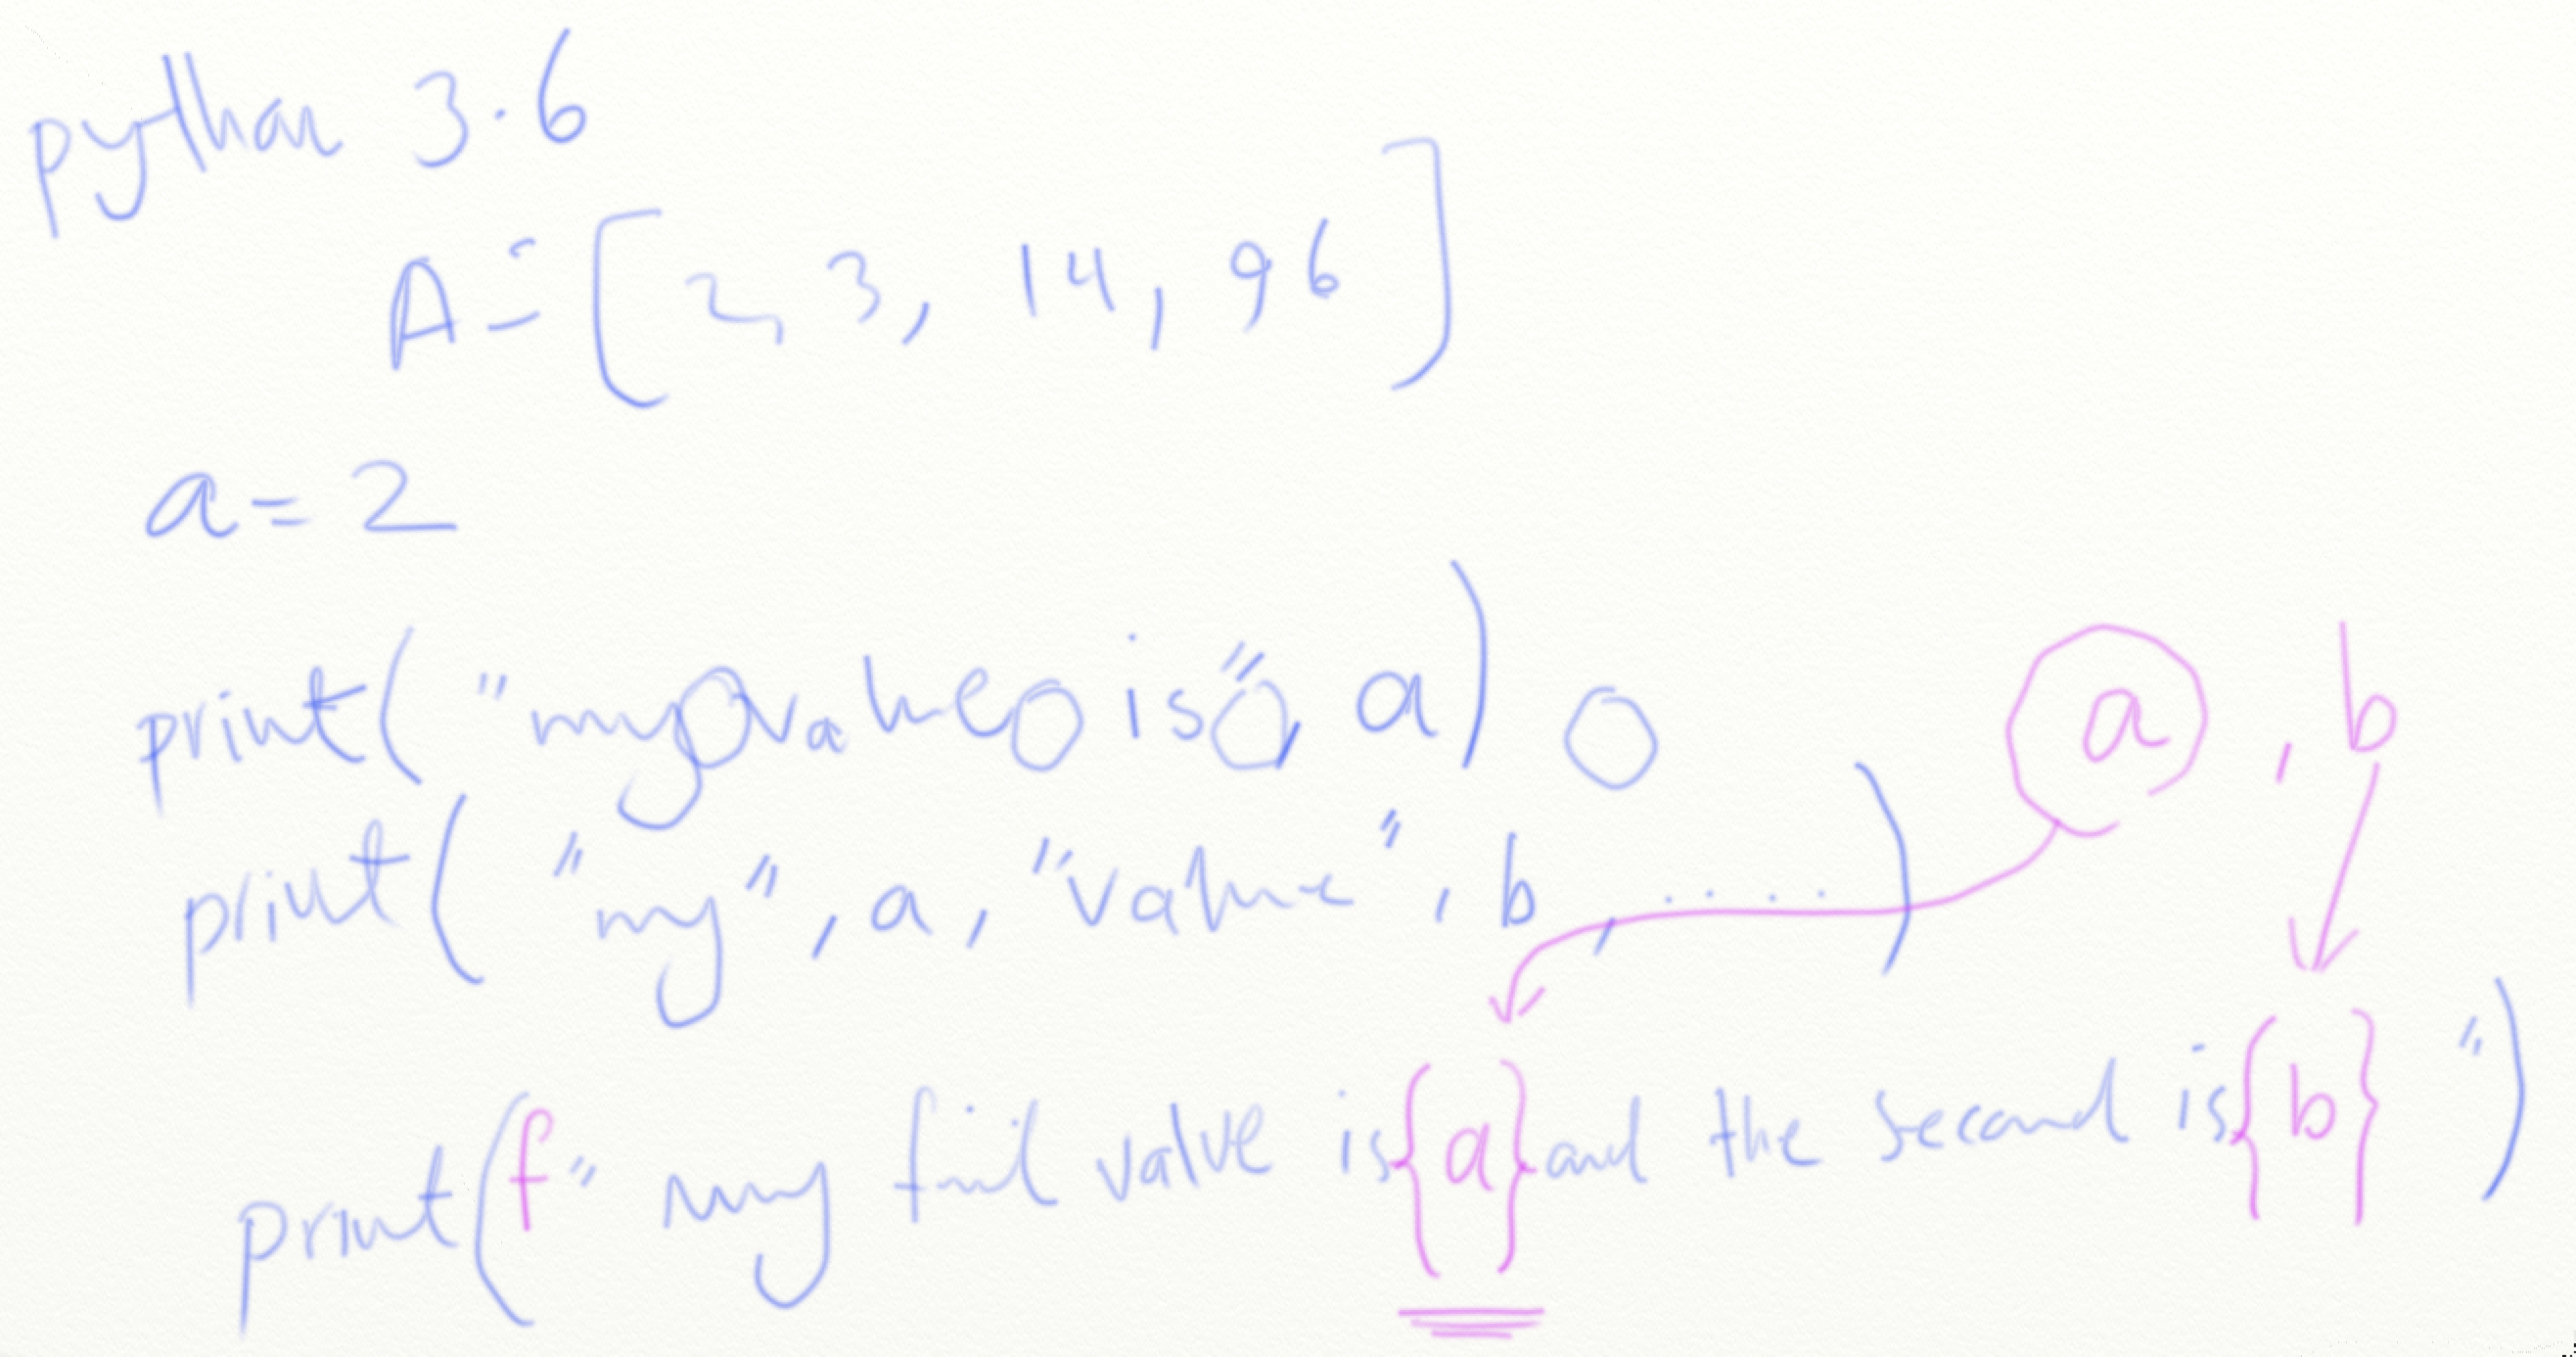 python 3.6
A = [2, 3, 14, 96]
a = 2
print("my value is", a)
a, b
print("my", a, "value", b, ....)
print(f" my value is {a} and the second is {b} ")